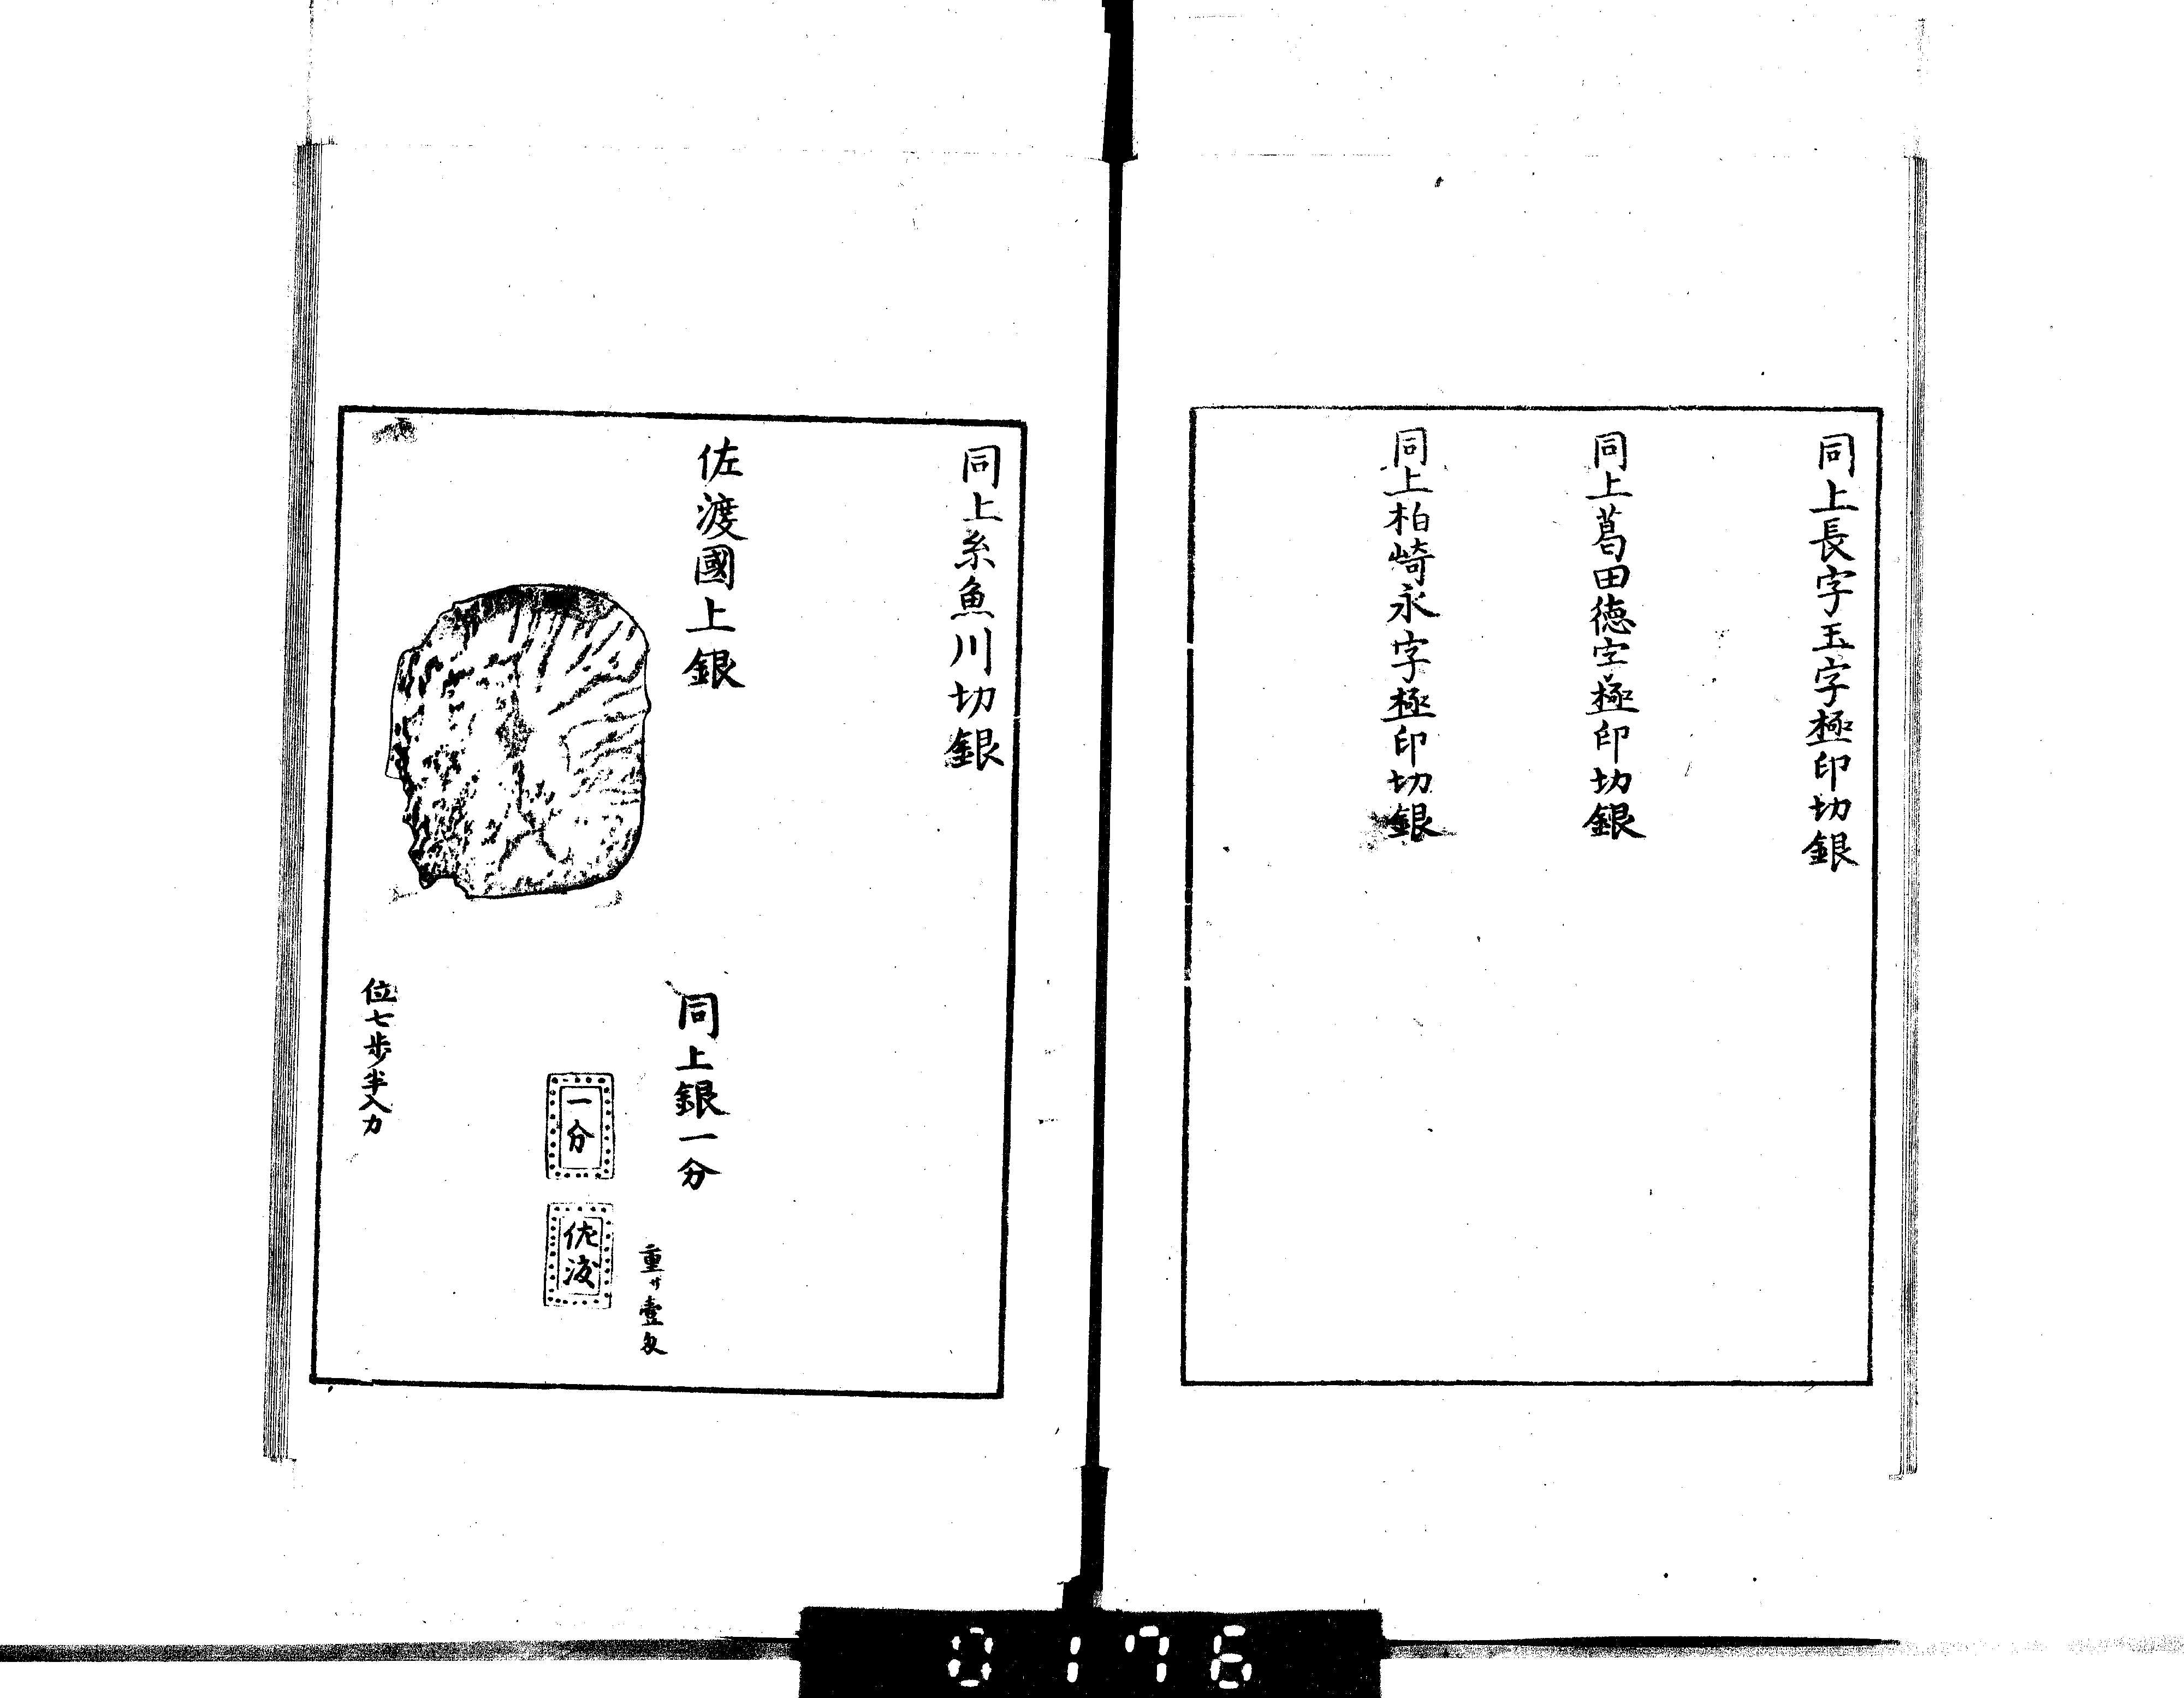 同上長字玉字極印切銀
同上葛田徳字極印切銀
同上柏崎永字極印切銀
同上糸魚川切銀
佐渡國上銀
同上銀一分
重サ壹匁
一分
佐渡
位七歩半入力
0176